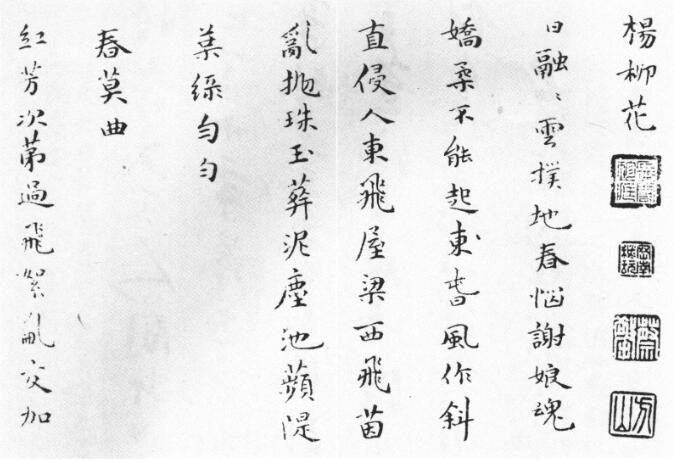 楊柳花
日融〻雲撲地春惱謝娘魂
嬌柔不能起東風作斜
直侵人東飛屋梁西飛茵
亂拋珠玉葬泥塵池蘋隄
葉綠勻勻
春莫曲
紅芳次第過飛絮亂交加